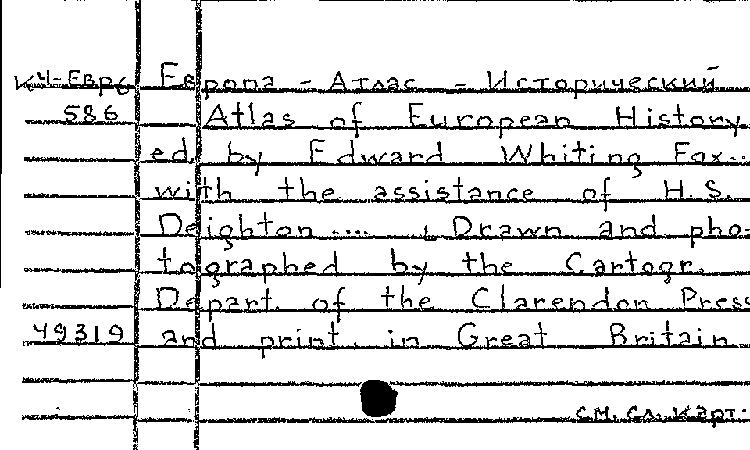 К4-Евр6 Европа - Атлас - Исторический
586 Atlas of European History
ed. by Edward Whiting Fox...
with the assistance of H.S.
Deighton .... Drawn and pho-
tographed by the Cartogr.
Depart. of the Clarendon Press
49319 and print. in Great Britain
см. сл. карт.